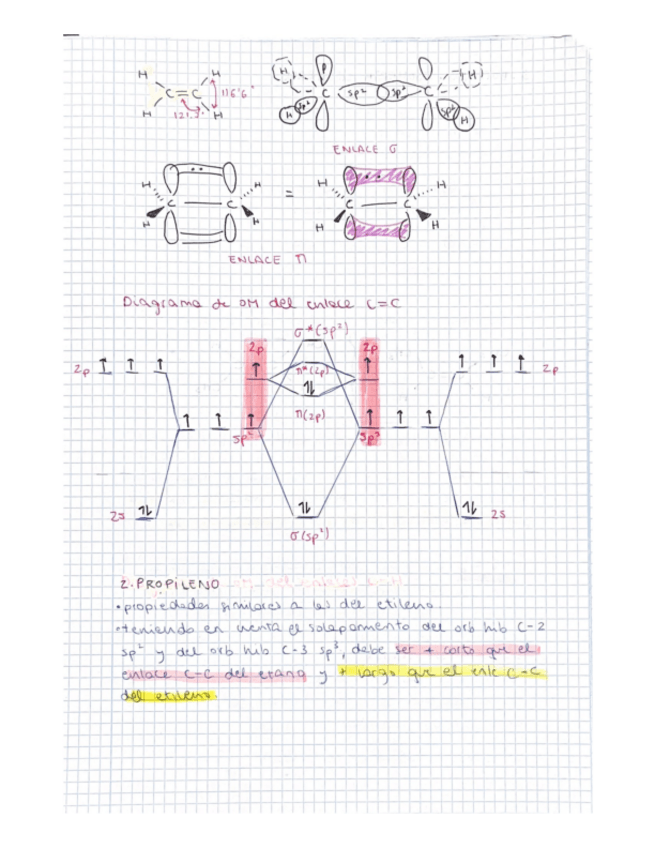 H H H H
C=C 116'6° P C sp² sp² C
H H 121'7° H sp² sp² H
ENLACE σ
H H = H H
C C C C
H H H H
ENLACE π
Diagrama de OM del enlace C=C
σ*(sp²)
2p 2p
2p π*(2p) 2p
π(2p)
sp² sp²
2s 2s
σ(sp²)
2. PROPILENO
• propiedades similares a las del etileno
• teniendo en cuenta el solapamiento del orb hib C-2
sp² y del orb hib C-3 sp³, debe ser + corto que el
enlace C-C del etano y + largo que el enlc C-C
del etileno.